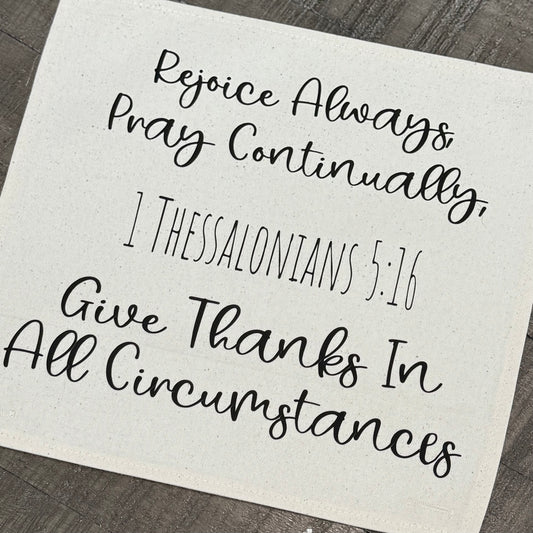 Rejoice Always,
Pray Continually,
1 THESSALONIANS 5:16
Give Thanks In
All Circumstances